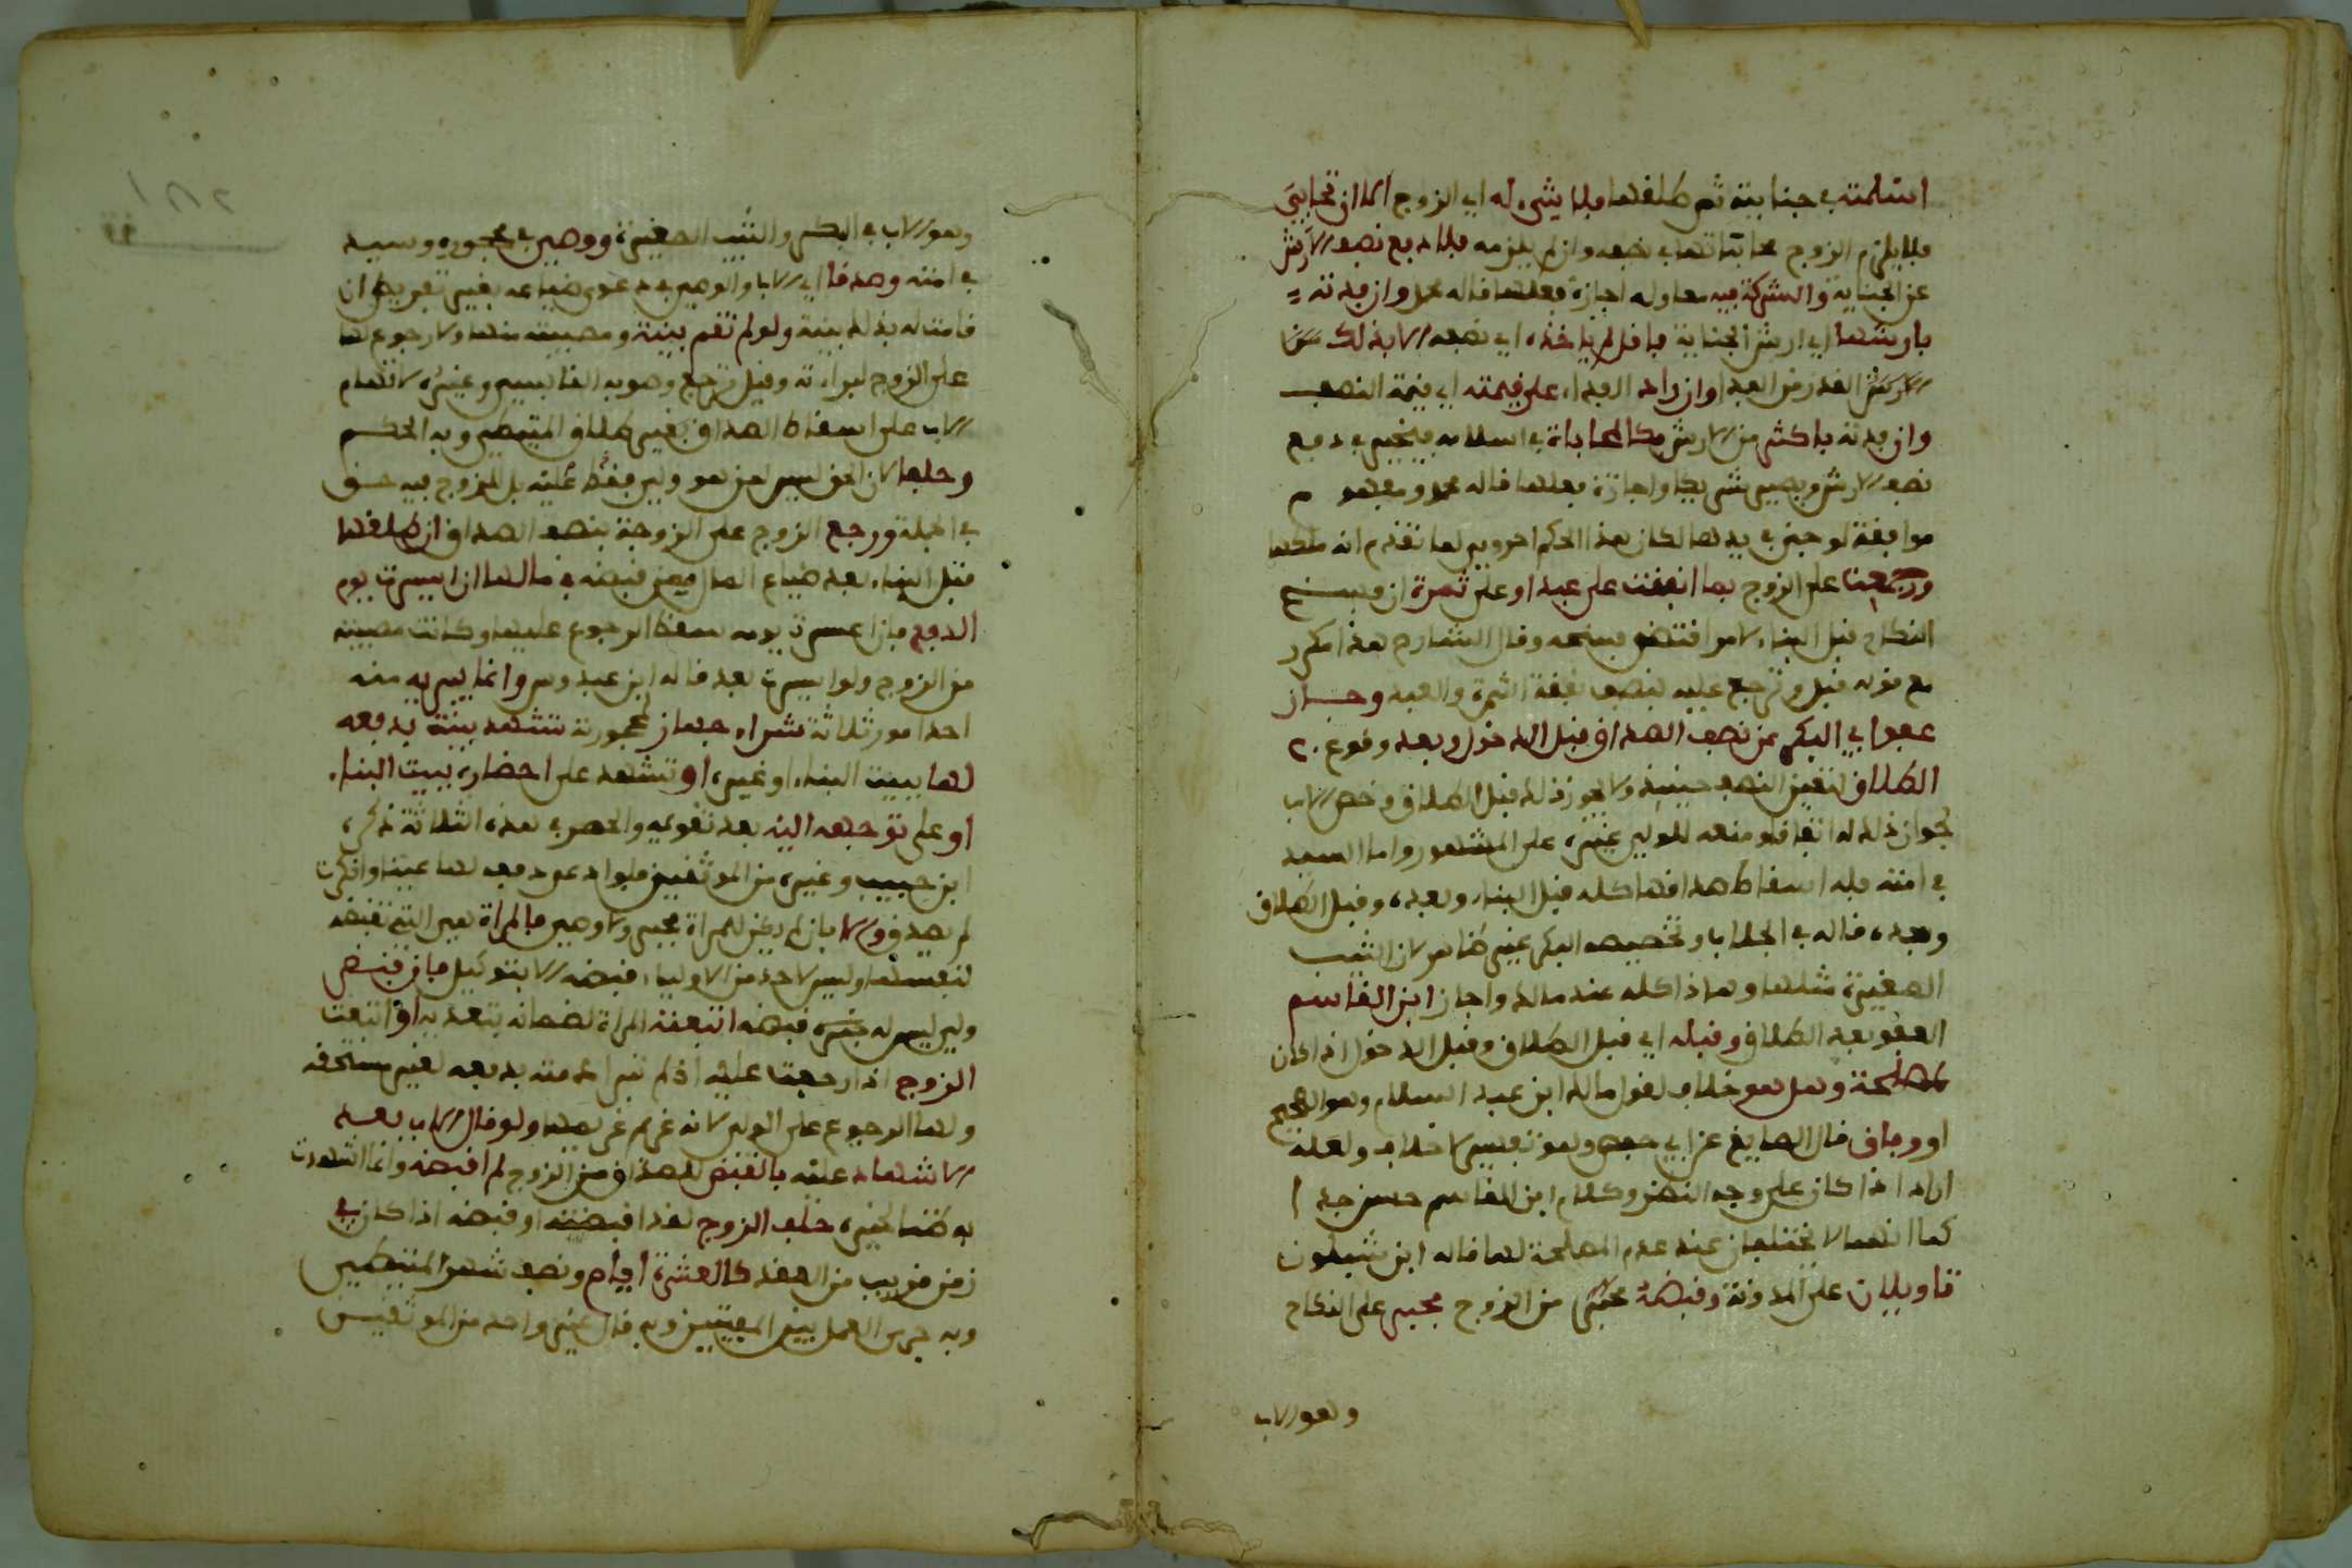 اسلمته في جناية ثم طلقها فلا شيء له اي الزوج الا ان تحابي
فلا يلزم الزوج محاباتها في نصفه وان لم يلزمه فلا دفع نصف الارش
عن الجناية والشركة فيه معا وله اجازة فعلها قاله محمد وان فدته
بارشها اي ارش الجناية فاقل لم ياخذه اي نصفه الا بذلك من
الارش القدر من الفدا وان زاد الفداء على قيمته اي قيمة النصف
وان فدته باكثر من الارش فكالمحاباة في اسلامه فيخير في دفع
نصف الارش ويصير شريكا واجازة فعلها قاله محمد ومفهوم
موافقة لو جنى في يدها لكان هذا الحكم احروي لما تقدم انه ملكها
ورجعت على الزوج بما انفقت على عبد او على ثمرة ان فسخ
النكاح قبل البناء لامر اقتضى فسخه وقال الشارح هذا مكرر
مع قوله قبل وترجع عليه بنصف نفقة الثمرة والعبد وجاز
عفو ابي البكر عن نصف الصداق قبل الدخول وبعد وقوع
الطلاق لتعين النصف حينئذ ولا يجوز ذلك قبل الطلاق وخص الاب
بجواز ذلك له اتفاقا ومنعه للولي غيره على المشهور واما السيد
في امته فله اسقاط صداقها كله قبل البناء وبعده وقبل الطلاق
وبعده قاله في الجلاب وتخصيصه البكر غير ظاهر لان الثيب
الصغيرة مثلها وهاذا كله عند مالك واجاز ابن القاسم
العفو بعد الطلاق وقبله اي قبل الطلاق وقبل الدخول اذا كان
لمصلحة وهل هو خلاف لقول مالك ابن عبد السلام وهو الصحيح
او وفاق قال الصايغ عن ابي حفص وهو تفسير لا خلاف ولعله
اراد اذا كان على وجه النظر وكلام ابن القاسم حسن جدا
كما انهما لا يختلفان عند عدم المصلحة لها قاله ابن شبلون
تاويلان على المدونة وقبضه مجبر من الزوج مجبر على النكاح
وهو الاب
وهو الاب في البكر والثيب الصغيرة ووصي في محجوره وسيد
في امته وصدقا اي الاب والوصي في دعوى ضياعه بغير تفريط ان
قامت له بذلك بينة ولو لم تقم بينة ومصيبته منها ولا رجوع لها
على الزوج لبراءته وقيل ترجع وهو به القابسي وغيره لاتهام
الاب على اسقاط الصداق بغير طلاق المتيطي وبه الحكم
وحلفا لان الحق ليس لمن هو ولي فقط عليه بل للزوج فيه حق
في الجملة ورجع الزوج على الزوجة بنصف الصداق ان طلقها
قبل البناء بعد ضياع المال ممن قبضه في مالها ان ايسرت يوم
الدفع فان اعسرت يومه سقط الرجوع عليها وكانت مصيبته
من الزوج ولو ايسرت بعد قاله ابن عبدوس وانما يبريه منه
احد امور ثلاثة شراء جهاز لمحجورته تشهد بينة بدفعه
لها ببيت البناء او غيره او تشهد على احضاره بيت البناء
او على توجهه اليه بعد تقويمه والحصر في هذه الثلاثة ذكره
ابن حبيب وغيره من الموثقين فلو ادعى دفعه لها عينا وانكرت
لم يصدق والا فان لم يكن للمراة مجبر ولا وصي فالمراة هي التي تقبضه
لنفسها وليس لاحد من الاولياء قبضه الا بتوكيل فان قبض
ولي ليس له جبره قبضه اتبعته المراة لضمانه بتعديه او اتبعت
الزوج اذا رجعت عليه اذ لم تبرا ذمته بدفعه لغير مستحقه
ولها الرجوع على الولي لانه غريم غريمها ولو قال الاب بعد
الاشهاد عليه بالقبض للصداق من الزوج لم اقبضه وانما اشهدت
به ظنا لخير حلف الزوج لقد اقبضته او قبضه اذا كان في
زمن قريب من العقد كالعشرة ايام ونصف شهر المتيطي
وبه جرى العمل بين المفتين وبه قال غير واحد من الموثقين